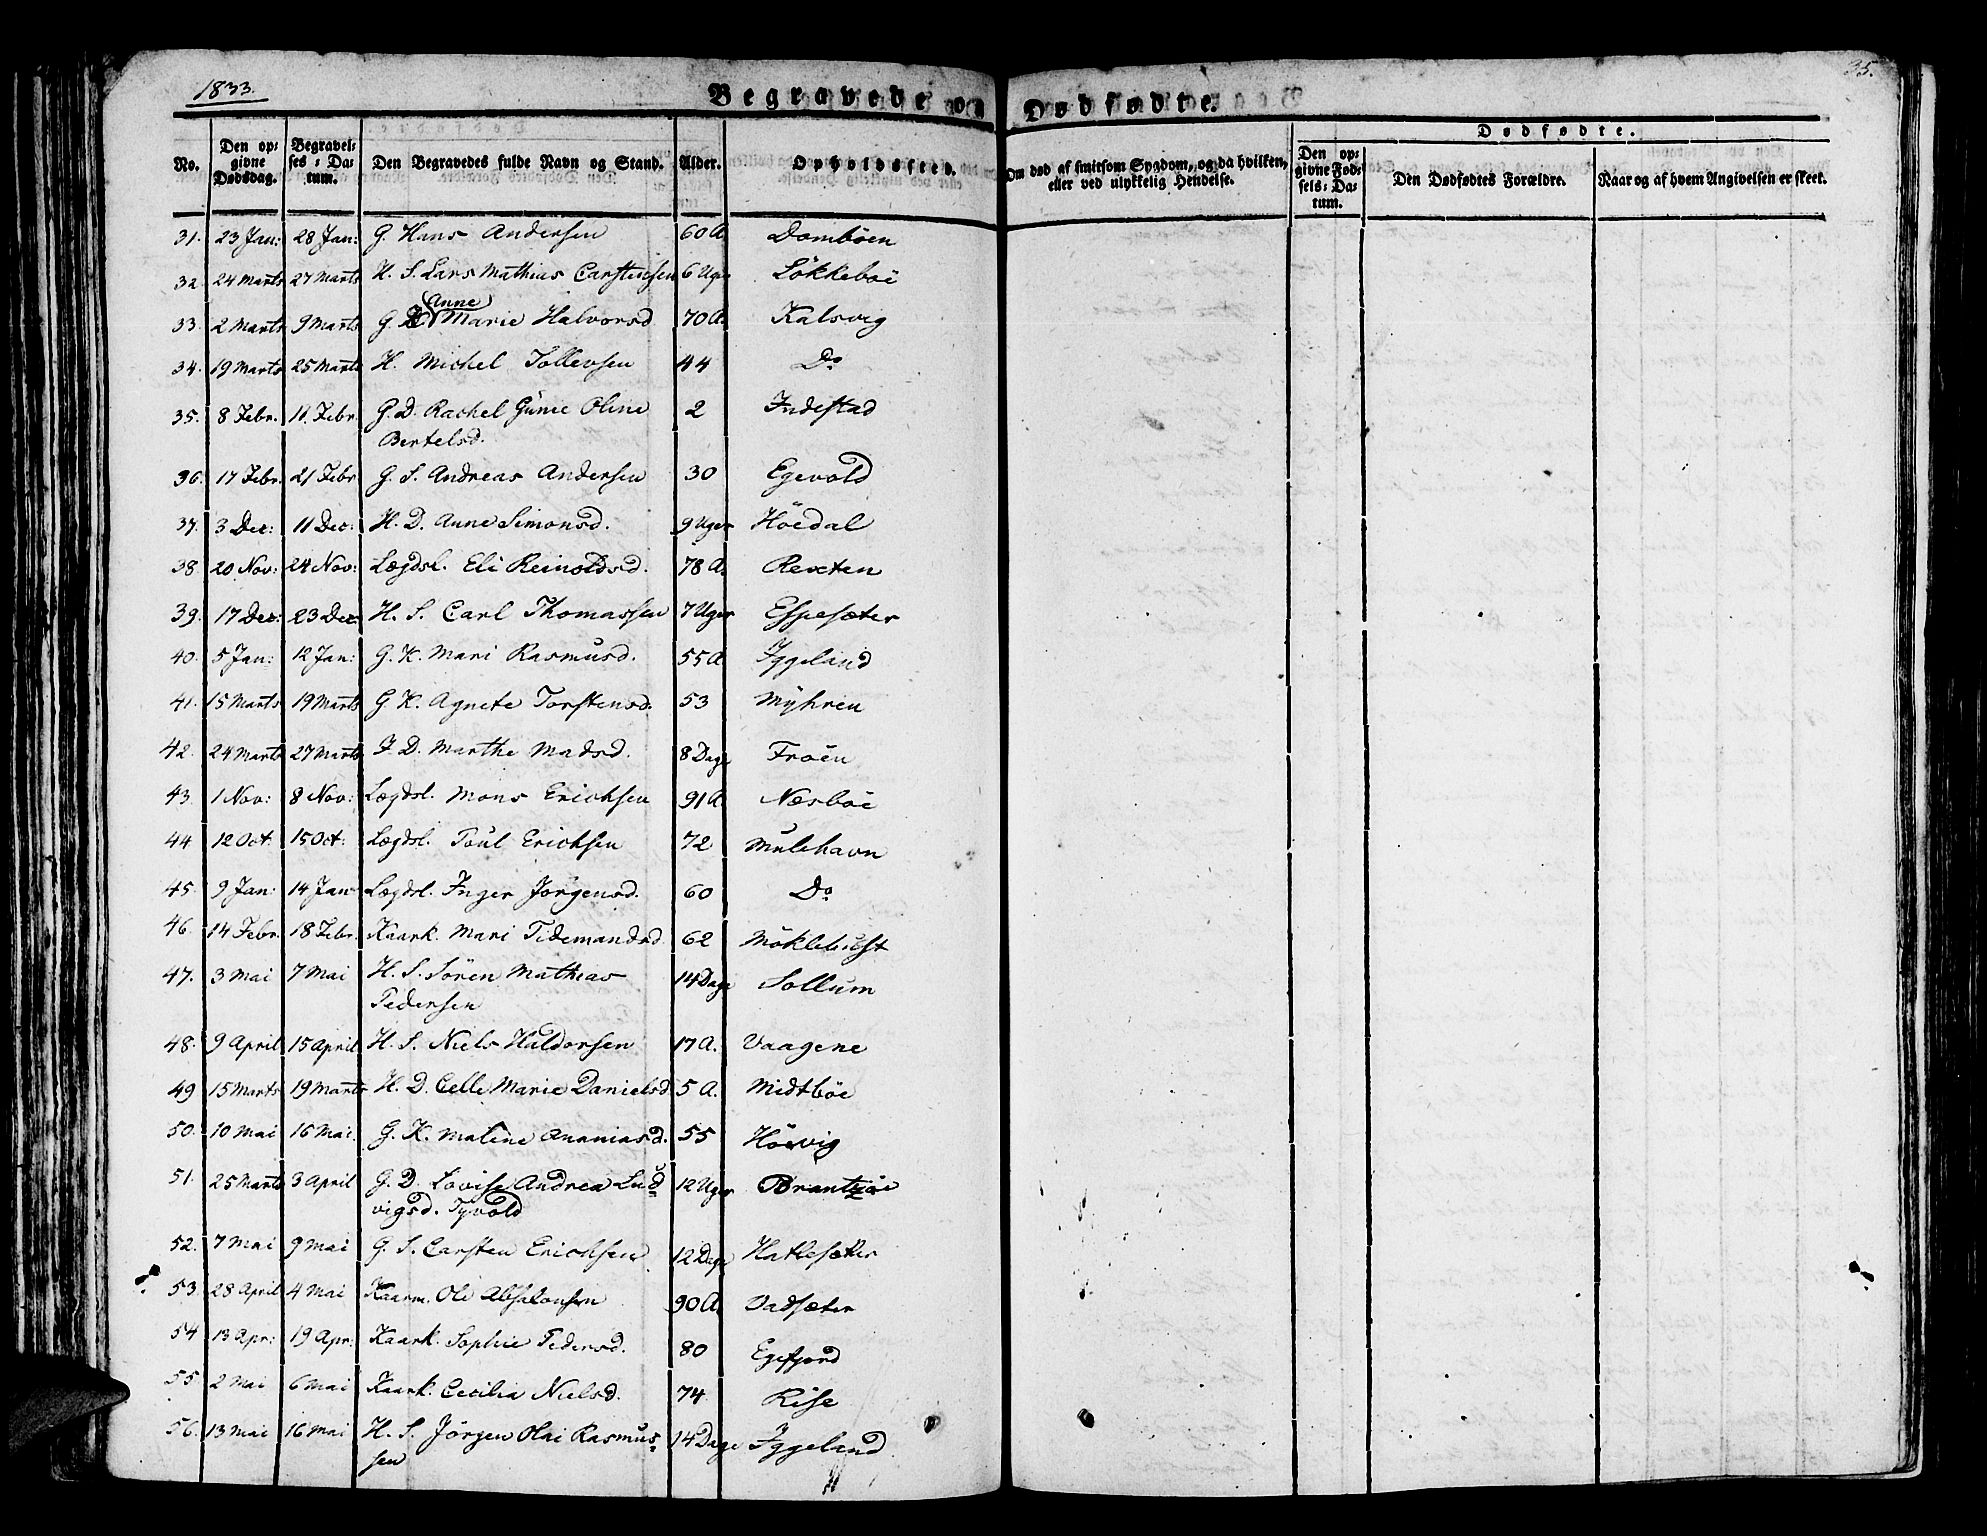 1833.
Begravede og Dødfødte.
35.
No.
Den op-
givne
Dødsdag.
Begravel-
ses-Da-
tum.
Den Begravedes fulde Navn og Stand.
Alder.
Opholdssted.
Om død af smitsom Sygdom, og da hvilken,
eller ved ulykkelig Hendelse.
Dødfødte.
Den op-
givne Fød-
sels-Da-
tum.
Den Dødfødtes Forældre.
Naar og af hvem Angivelsen er skeet.
31. 23 Jan: 28 Jan: G. Hans Andersen 60 A. Dombøen
32. 24 Marts 27 Marts H. S. Lars Mathias Carstensen 6 Uger Løkkeboe
Anne
33. 2 Marts 9 Marts G. K. Marie Halvorsd 70 A. Kalsvig
34. 19 Marts 25 Marts H. Michel Tollevsen 44 Do
35. 8 Febr. 11. Febr. G. D. Rachel Gunie Oline 2 Indestad
Bertelsd.
36. 17 Febr. 21 Febr G. S. Andreas Andersen 30 Egevold
37. 3 Dec: 11 Dec: H. D. Anne Simonsd. 9 Uger Høedal
38. 20 Nov: 24 Nov: Lægdsl. Eli Reinoldsd. 78 A. Rexten
39. 17 Dec: 23 Dec: H. S. Carl Thomassen 7 Uger Espesæter
40. 5 Jan: 12 Jan: G. K. Mari Rasmusd. 55 A. Iggeland
41. 15 Marts 19 Marts G K. Agnete Torstensd. 53 Myhren
42. 24 Marts 27 Marts I D. Marthe Madsd. 8 Dage Frøen
43. 1 Nov: 8 Nov: Lægdsl. Mons Erichsen 91 A. Næsbøe
44 12 Oct: 15 Oct: Lægdsl. Poul Erichsen 72 Mulehavn
45. 9 Jan: 14 Jan Lægdsl. Inger Jørgensd. 60 Do
46. 14 Febr. 18 Febr. Kaark. Mari Tidemandsd 62 Møklebust
47. 3 Mai 7 Mai H. S. Søren Mathias 14 Dage Sollum
Pedersen
48. 9 April 15 April H. S. Niels Haldorsen 17 A. Vaagene
49 15 Marts 19 Marts H. D. Celle Marie Danielsd 5 A. Midtbøe
50. 10 Mai 16 Mai. G. K. Malene Ananiasd. 55 Høevig
51. 25 Marts 3 April G. D. Lovise Andrea Lud- 12 Uger
vigsd. Tyvold
52. 7 Mai 9 Mai G. S. Carsten Erichsen 12 Dage Hatlesæter
53. 28 April 4 Mai Kaarm. Ole Absalonsen 90 A. Vadsæter
54 13 Apr: 19 Apr: Kaark. Sophie Pedersd. 80 Egefjord
55 2 Mai 6 Mai Kaark. Cecilia Nielsd. 74 Rise
56. 13 Mai 16 Mai H. S. Jørgen Olai Rasmus- 14 Dage Iggeland
sen